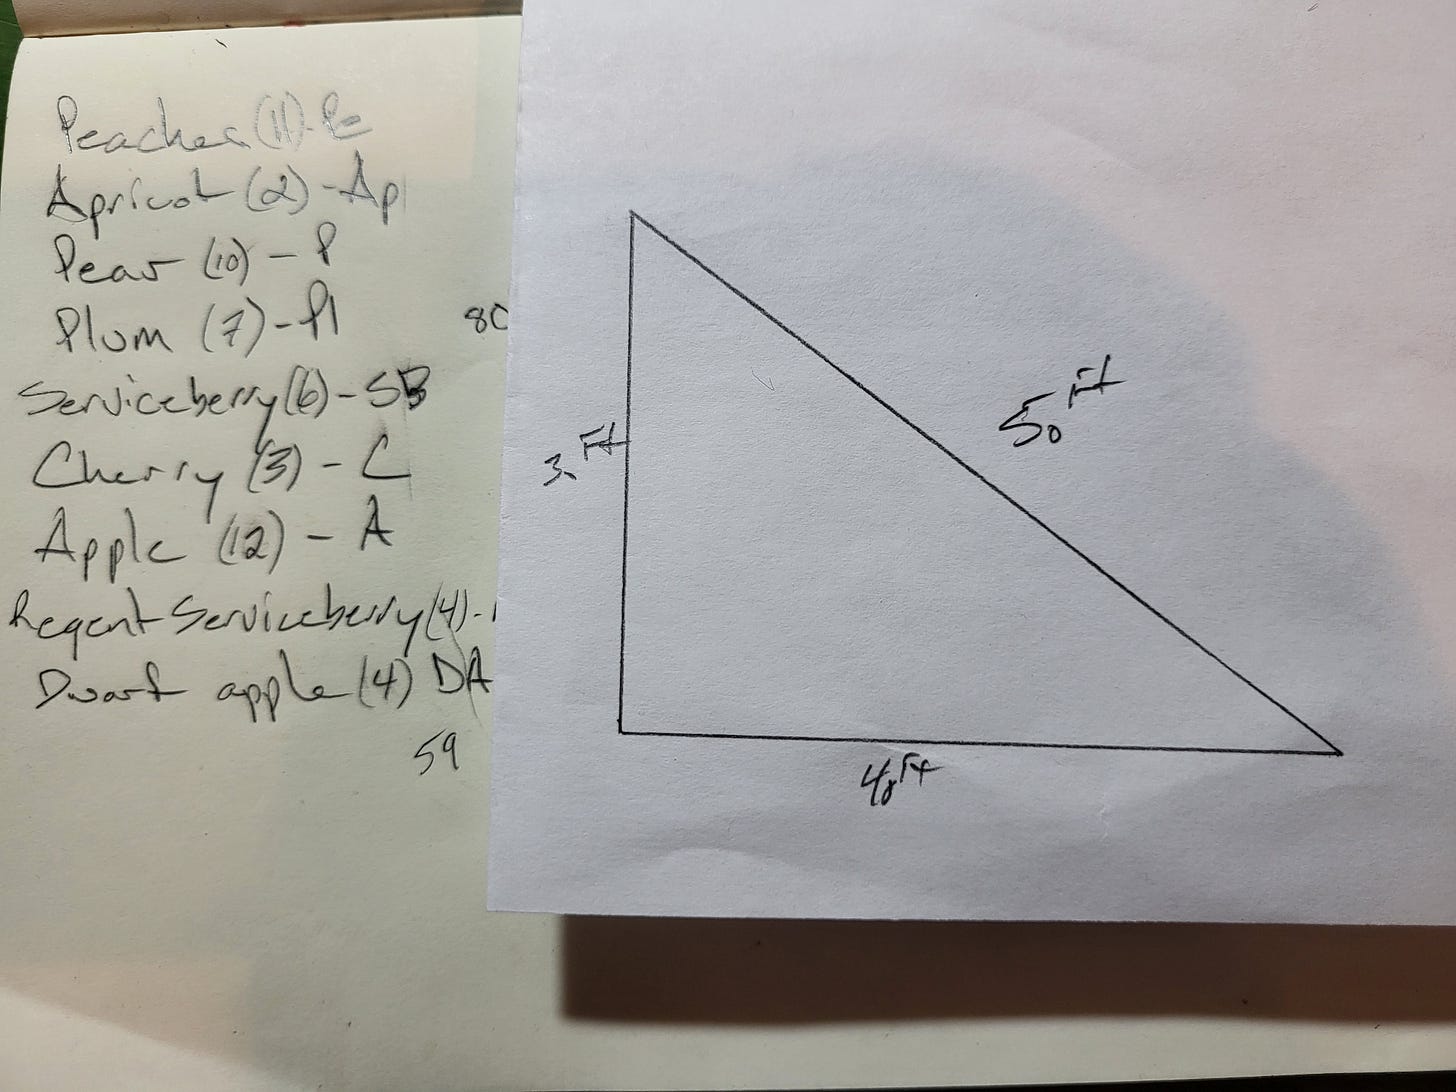 Peaches (11) - Pe
Apricot (2) - Ap
Pear (10) - P
Plum (7) - Pl
80
Serviceberry (6) - SB
Cherry (3) - C
Apple (12) - A
Regent Serviceberry (4) -
Dwarf apple (4) DA
59
Ft
50 Ft
Ft